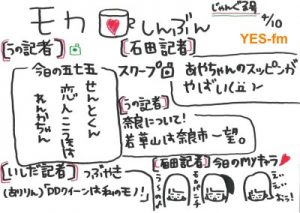 モカしんぶん
じゃんぐる号
4/10
YES-fm
[うの記者]
今日の五七五
せんとくん
恋人こうほ
れんかちゃん
[石田記者]
スクープ
あやちゃんのスッピンが
やばい(笑)
[うの記者]
奈良について!
若草山は奈良市一望。
[いしだ記者]つぶやき
(ありりん)「DDクイーンは私のモノ!」
[石田記者]今日のMYキャラ